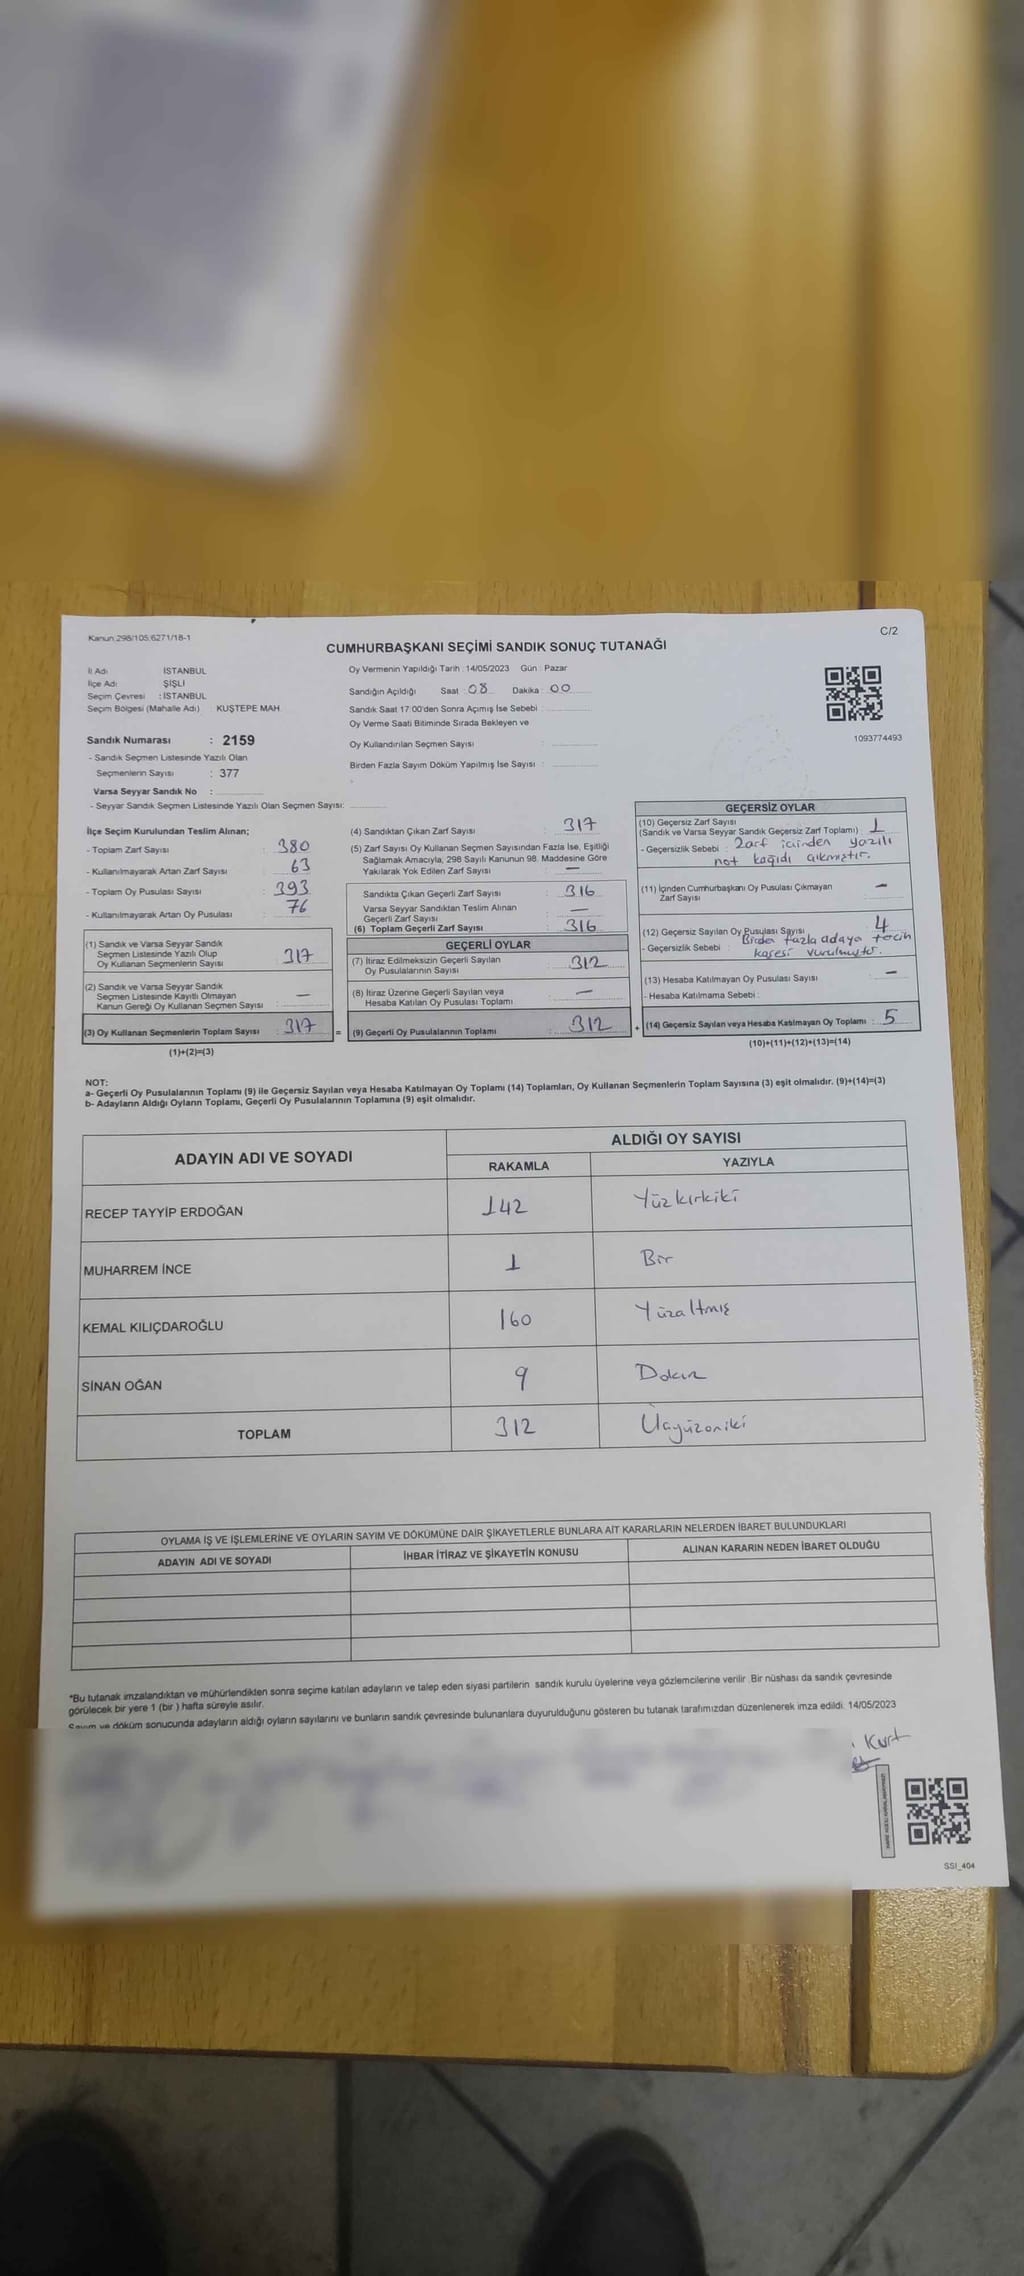 Kanun 298/105.6271/18-1
C/2
CUMHURBAŞKANI SEÇİMİ SANDIK SONUÇ TUTANAĞI
İl Adı İSTANBUL
İlçe Adı ŞİŞLİ
Seçim Çevresi : İSTANBUL
Seçim Bölgesi (Mahalle Adı) KUŞTEPE MAH.
Oy Vermenin Yapıldığı Tarih : 14/05/2023 Gün : Pazar
Sandığın Açıldığı Saat : 08 Dakika : 00
Sandık Saat 17:00'den Sonra Açmış İse Sebebi :
Oy Verme Saati Bitiminde Sırada Bekleyen ve
Oy Kullandırılan Seçmen Sayısı :
Birden Fazla Sayım Döküm Yapılmış İse Sayısı :
1093774493
Sandık Numarası : 2159
- Sandık Seçmen Listesinde Yazılı Olan
Seçmenlerin Sayısı : 377
Varsa Seyyar Sandık No :
- Seyyar Sandık Seçmen Listesinde Yazılı Olan Seçmen Sayısı:
İlçe Seçim Kurulundan Teslim Alınan;
- Toplam Zarf Sayısı : 380
- Kullanılmayarak Artan Zarf Sayısı : 63
- Toplam Oy Pusulası Sayısı : 393
- Kullanılmayarak Artan Oy Pusulası : 76
(1) Sandık ve Varsa Seyyar Sandık
Seçmen Listesinde Yazılı Olup
Oy Kullanan Seçmenlerin Sayısı : 317
(2) Sandık ve Varsa Seyyar Sandık
Seçmen Listesinde Kayıtlı Olmayan
Kanun Gereği Oy Kullanan Seçmen Sayısı : —
(3) Oy Kullanan Seçmenlerin Toplam Sayısı : 317 =
(1)+(2)=(3)
(4) Sandıktan Çıkan Zarf Sayısı : 317
(5) Zarf Sayısı Oy Kullanan Seçmen Sayısından Fazla İse, Eşitliği
Sağlamak Amacıyla, 298 Sayılı Kanunun 98. Maddesine Göre
Yakılarak Yok Edilen Zarf Sayısı : —
Sandıkta Çıkan Geçerli Zarf Sayısı : 316
Varsa Seyyar Sandıktan Teslim Alınan
Geçerli Zarf Sayısı : —
(6) Toplam Geçerli Zarf Sayısı : 316
GEÇERLİ OYLAR
(7) İtiraz Edilmeksizin Geçerli Sayılan
Oy Pusulalarının Sayısı : 312
(8) İtiraz Üzerine Geçerli Sayılan veya
Hesaba Katılan Oy Pusulası Toplamı : —
(9) Geçerli Oy Pusulalarının Toplamı : 312 +
GEÇERSİZ OYLAR
(10) Geçersiz Zarf Sayısı
(Sandık ve Varsa Seyyar Sandık Geçersiz Zarf Toplamı) : 1
- Geçersizlik Sebebi : Zarf içinden yazılı
not kağıdı çıkmıştır.
(11) İçinden Cumhurbaşkanı Oy Pusulası Çıkmayan
Zarf Sayısı : —
(12) Geçersiz Sayılan Oy Pusulası Sayısı : 4
- Geçersizlik Sebebi : Birden fazla adaya tercih
kaşesi vurulmuştur.
(13) Hesaba Katılmayan Oy Pusulası Sayısı : —
- Hesaba Katılmama Sebebi :
(14) Geçersiz Sayılan veya Hesaba Katılmayan Oy Toplamı : 5
(10)+(11)+(12)+(13)=(14)
NOT:
a- Geçerli Oy Pusulalarının Toplamı (9) ile Geçersiz Sayılan veya Hesaba Katılmayan Oy Toplamı (14) Toplamları, Oy Kullanan Seçmenlerin Toplam Sayısına (3) eşit olmalıdır. (9)+(14)=(3)
b- Adayların Aldığı Oyların Toplamı, Geçerli Oy Pusulalarının Toplamına (9) eşit olmalıdır.
ADAYIN ADI VE SOYADI ALDIĞI OY SAYISI
RAKAMLA YAZIYLA
RECEP TAYYİP ERDOĞAN 142 Yüzkırkiki
MUHARREM İNCE 1 Bir
KEMAL KILIÇDAROĞLU 160 Yüzaltmış
SİNAN OĞAN 9 Dokuz
TOPLAM 312 Üçyüzoniki
OYLAMA İŞ VE İŞLEMLERİNE VE OYLARIN SAYIM VE DÖKÜMÜNE DAİR ŞİKAYETLERLE BUNLARA AİT KARARLARIN NELERDEN İBARET BULUNDUKLARI
ADAYIN ADI VE SOYADI İHBAR İTİRAZ VE ŞİKAYETİN KONUSU ALINAN KARARIN NEDEN İBARET OLDUĞU
*Bu tutanak imzalandıktan ve mühürlendikten sonra seçime katılan adayların ve talep eden siyasi partilerin sandık kurulu üyelerine veya gözlemcilerine verilir. Bir nüshası da sandık çevresinde
görülecek bir yere 1 (bir ) hafta süreyle asılır.
Sayım ve döküm sonucunda adayların aldığı oyların sayılarını ve bunların sandık çevresinde bulunanlara duyurulduğunu gösteren bu tutanak tarafımızdan düzenlenerek imza edildi. 14/05/2023
Kurt
SSI_404